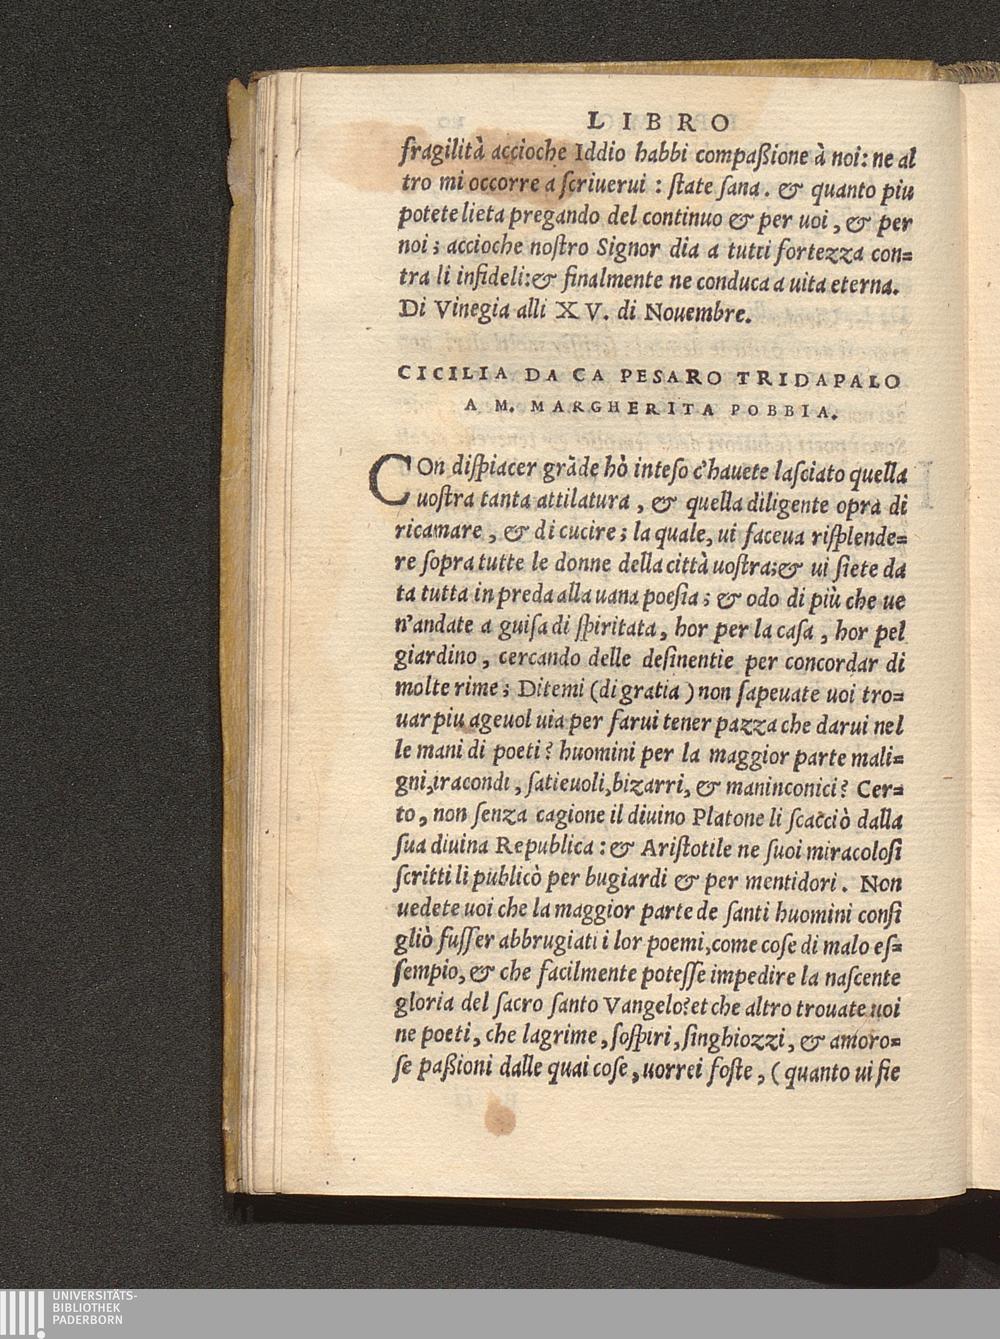 LIBRO
fragilità accioche Iddio habbi compaßione à noi: ne al
tro mi occorre a ſcriuerui : ſtate ſana. & quanto piu
potete lieta pregando del continuo & per uoi, & per
noi; accioche noſtro Signor dia a tutti fortezza con=
tra li infideli:& finalmente ne conduca a uita eterna.
Di Vinegia alli XV. di Nouembre.
CICILIA DA CA PESARO TRIDAPALO
A M. MARGHERITA POBBIA.
COn diſpiacer grāde hò inteſo c'hauete laſciato quella
uoſtra tanta attilatura, & quella diligente opra di
ricamare, & di cucire; la quale, ui faceua riſplende=
re ſopra tutte le donne della città uoſtra;& ui ſiete da
ta tutta in preda alla uana poeſia; & odo di più che ue
n'andate a guiſa di ſpiritata, hor per la caſa, hor pel
giardino, cercando delle deſinentie per concordar di
molte rime; Ditemi (di gratia) non ſapeuate uoi tro=
uar piu ageuol uia per farui tener pazza che darui nel
le mani di poeti? huomini per la maggior parte mali=
gni,iracondi, ſatieuoli,bizarri, & maninconici? Cer=
to, non ſenza cagione il diuino Platone li ſcacciò dalla
ſua diuina Republica: & Ariſtotile ne ſuoi miracoloſi
ſcritti li publicò per bugiardi & per mentidori. Non
uedete uoi che la maggior parte de ſanti huomini conſi
gliò fuſſer abbrugiati i lor poemi,come coſe di malo eſ=
ſempio, & che facilmente poteſſe impedire la naſcente
gloria del ſacro ſanto Vangelo?et che altro trouate uoi
ne poeti, che lagrime, ſoſpiri, ſinghiozzi, & amoro=
ſe paßioni dalle quai coſe, uorrei foſte, (quanto ui ſie
UNIVERSITÄTS-
BIBLIOTHEK
PADERBORN